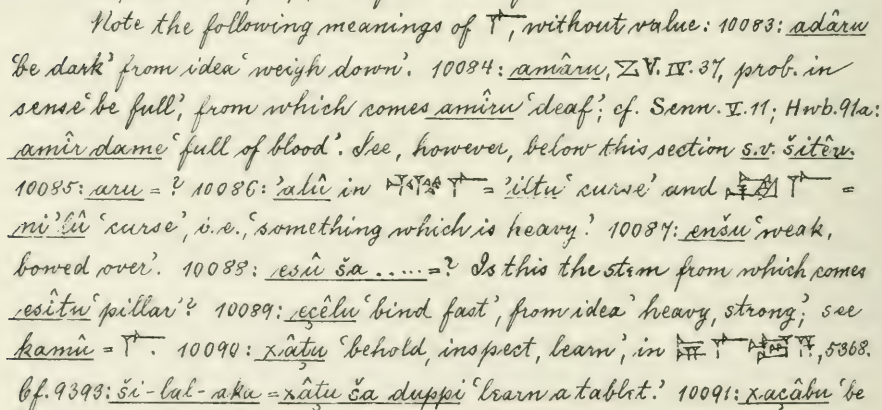 Note the following meanings of 𒇲, without value: 10083: adâru
'be dark' from idea 'weigh down'. 10084: amâru, ZV. IV. 37, prob. in
sense 'be full', from which comes amîru 'deaf'; cf. Senn. V. 11; Hwb. 91a:
amîr dame 'full of blood'. See, however, below this section s.v. šitêu.
10085: aru = ? 10086: 'alû in 𒇲 = 'iltu 'curse' and 𒇲 =
ni'lû 'curse', i.e., 'something which is heavy.' 10087: enšu 'weak,
bowed over'. 10088: esû ša ..... = ? Is this the stem from which comes
esîtu 'pillar'? 10089: eçêlu 'bind fast', from idea 'heavy, strong'; see
kamû = 𒇲. 10090: xâṭu 'behold, inspect, learn', in 𒇲, 5368.
Cf. 9393: ši-lal-aka = xâṭu ša duppi 'learn a tablet.' 10091: xaçâbu 'be